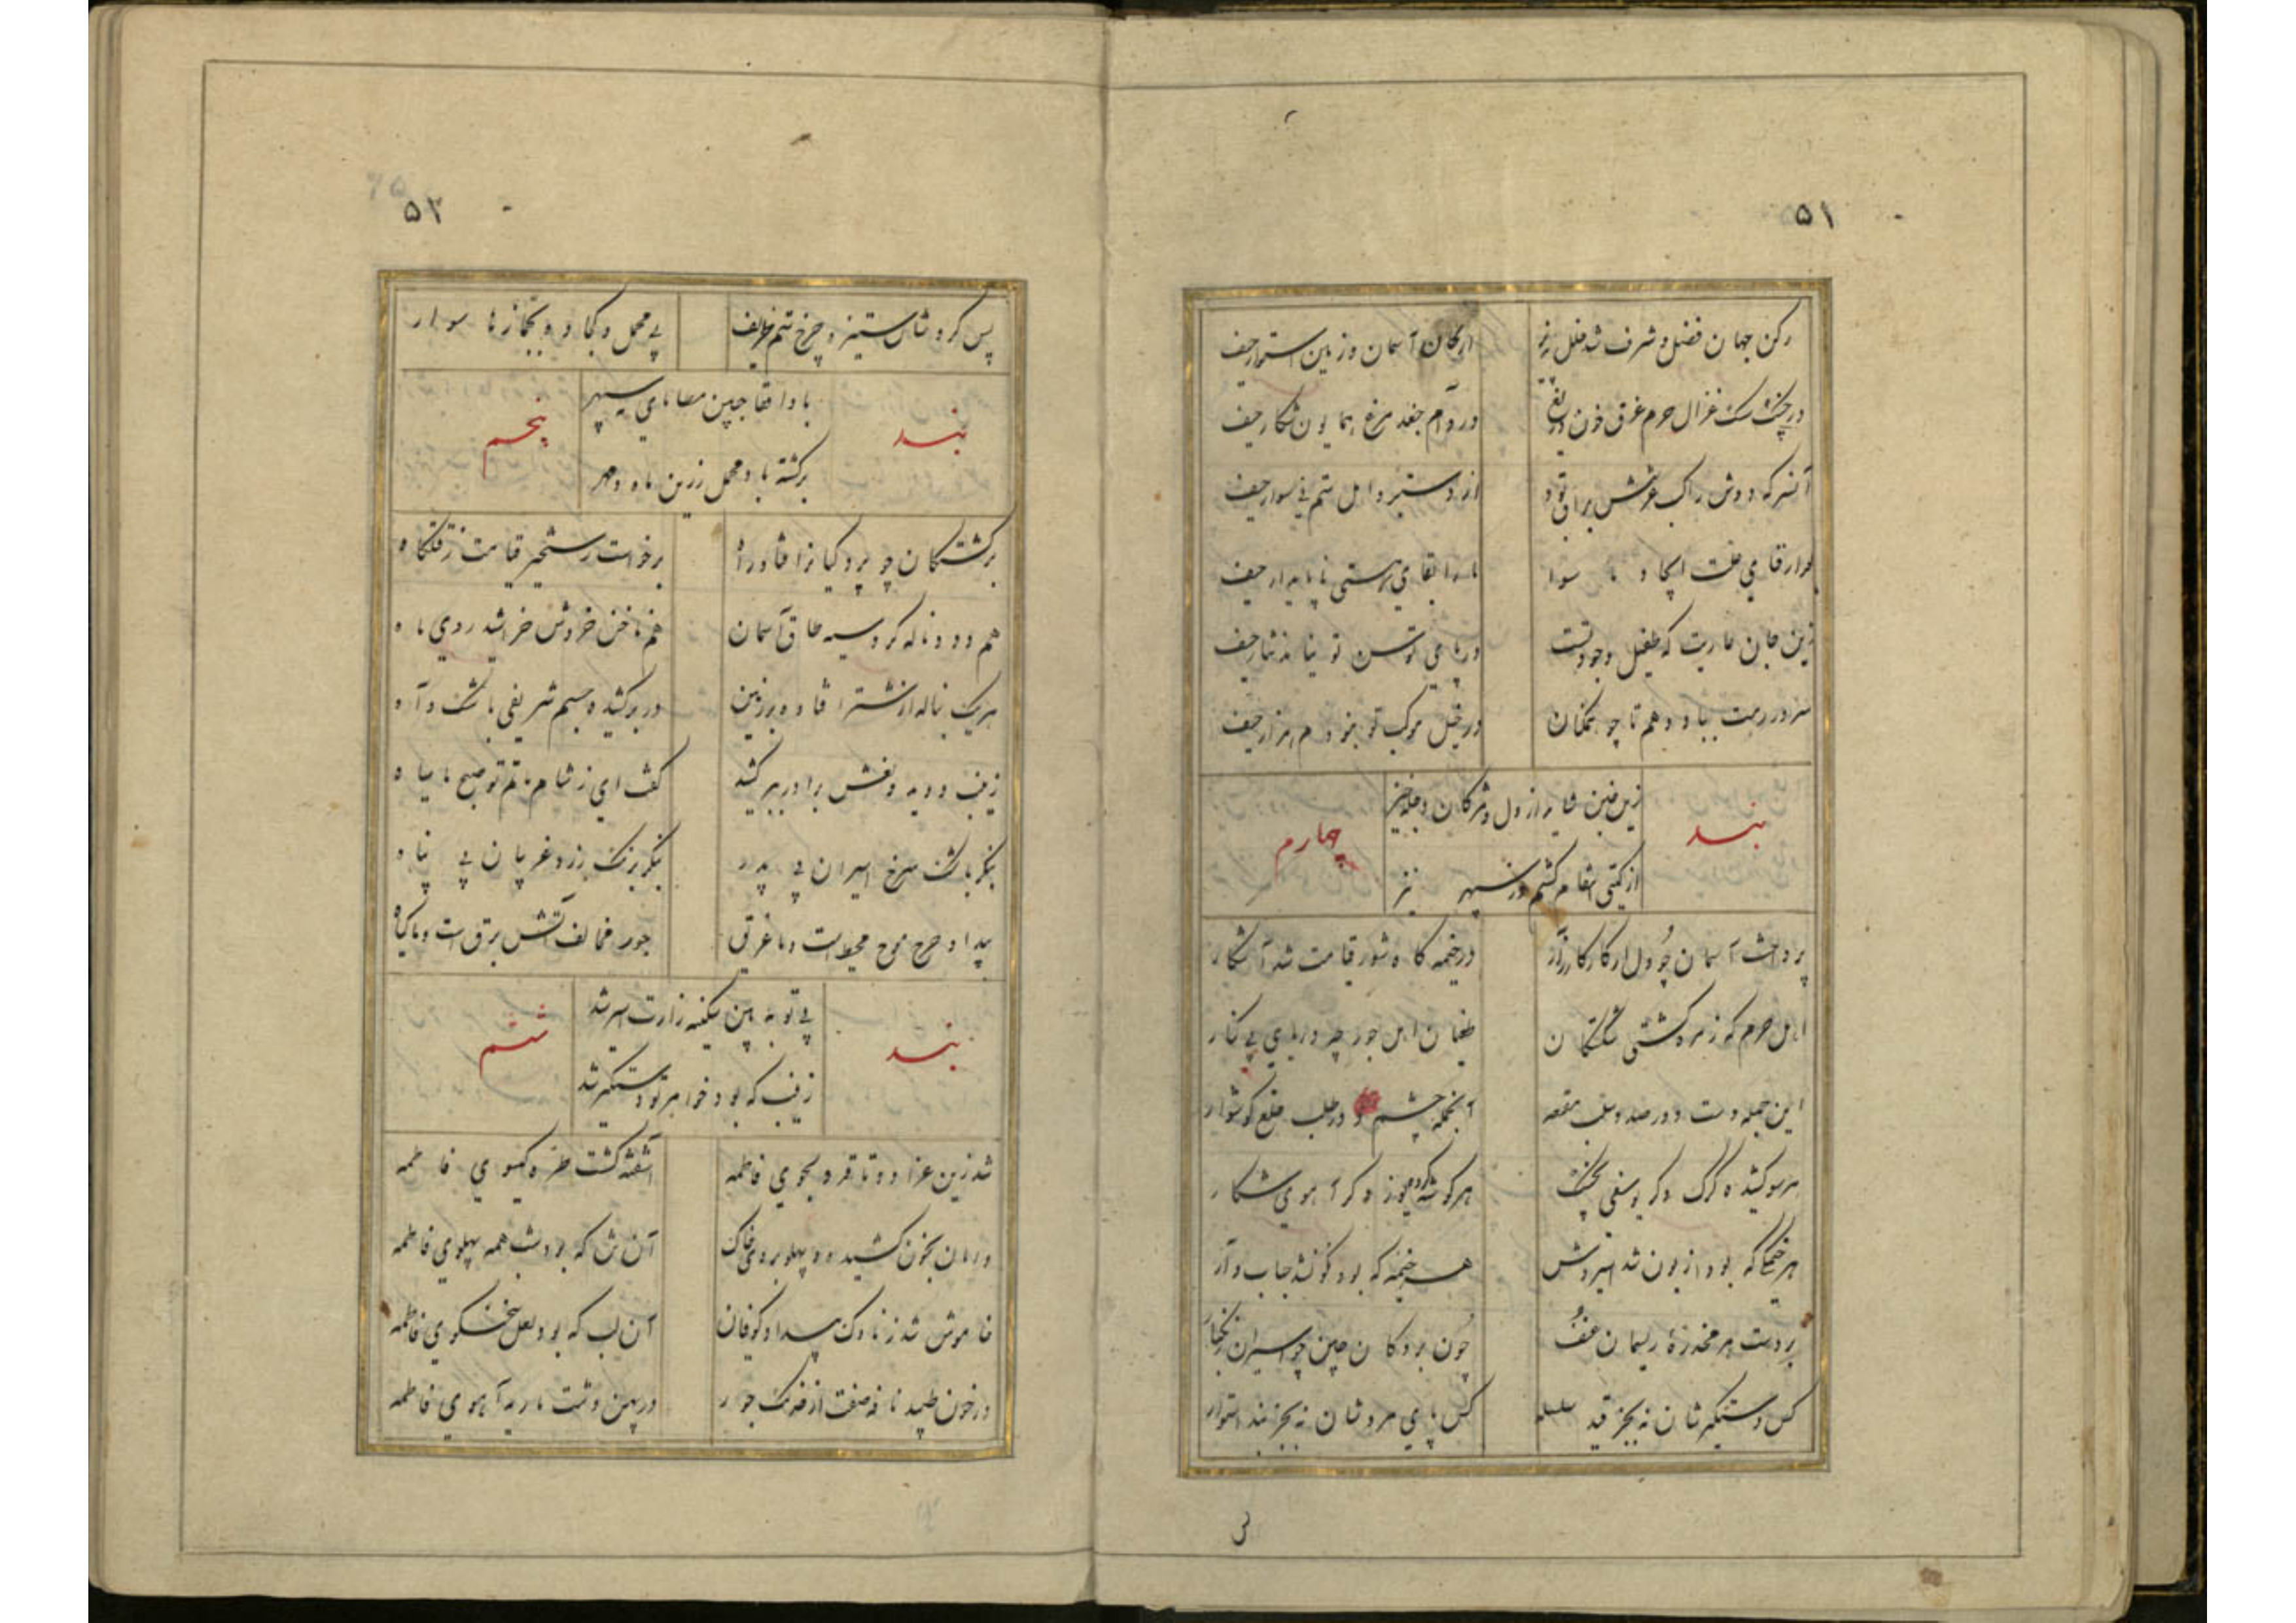 ۵۱
رکن جهان فضل و شرف شد خلل پذیر
ارکان آسمان و زمین استوار حیف
در چنگ سگ غزال حرم غرق خون دریغ
در دام جغد مرغ همایون شکار حیف
آنسر که دوش راکب عرشش براق بود
از دستبرد اهل ستم نی سوار حیف
ما را بقای هستی ناپایدار حیف
زین جان عاریت که طفیل وجود تست
در پای توسن تو نیامد نثار حیف
سر در رهت بباد دهم تا چو همکنان
در خیل موکب تو نبودم هزار حیف
بند
زین غبن شاید از دل و مژگان دجله خیز
چهارم
از گیتی انتقام کشم وز سپهر نیز
پرداخت آسمان چو دل از کار کارزار
در خیمه گاه شور قیامت شد آشکار
اهل حرم که زمره کشتی شکستگان
طغیان اهل جور چو دریای بی کنار
این جمله دست و در صدد سلب مقنعه
آنجمله چشم و در طلب خلع گوشوار
هر سو کشیده گرگ دگر یوسفی بچنگ
هر گوشه کرده یوز دگر آهوی شکار
هر خیمگی که بود از بون شد اسیروش
هر خیمه که بود نگون شد حباب وار
بر دست هر مخدره ریسمان عنف
چون بردگان چین چو اسیران زنگبار
کس دستگیر شان نه بجز قید سلسله
کس پای مرد شان نه بجز بند استوار
۵۲
پس کرد شان ستیزه چرخ ستم ظریف
بی محمل و کجاوه بجمازه ها سوار
بند
باد از قفا چنین مصامای سپهر
پنجم
برگشته باد محمل زرین ماه و مهر
بر کشتگان چو پردگیانرا فتاد راه
برخواست رستخیز قیامت ز قتلگاه
هم دود ناله کرد سیه طاق آسمان
هم ناخن خروش خراشید روی ماه
هر یک بناله از شتر افتاده بر زمین
در بر کشیده جسم شریفی باشک و آه
زینب دوید و نعش برادر ببر کشید
گفت ای ز شام ماتم تو صبح ما سیاه
بنگر باشک سرخ اسیران بی پدر
بنگر برنگ زرد غریبان بی پناه
بیداد خرج موج محیط است و ما غریق
جور مخالف آتش برق است و ما گیاه
بند
بی تو به بین سکینه زارت اسیر شد
ششم
زینب که بود خواهر تو دستگیر شد
شد زین عزا دو تا قد دلجوی فاطمه
آشفته گشت طره گیسوی فاطمه
دامان بخون کشید و پهلو بروی خاک
آن تن که بود شب همه پهلوی فاطمه
خاموش شد ز ناوک بیداد کوفیان
آن لب که بود لعل سخنگوی فاطمه
در خون طپید نافه صفت از خدنگ جور
در پهن دشت ماریه آهوی فاطمه